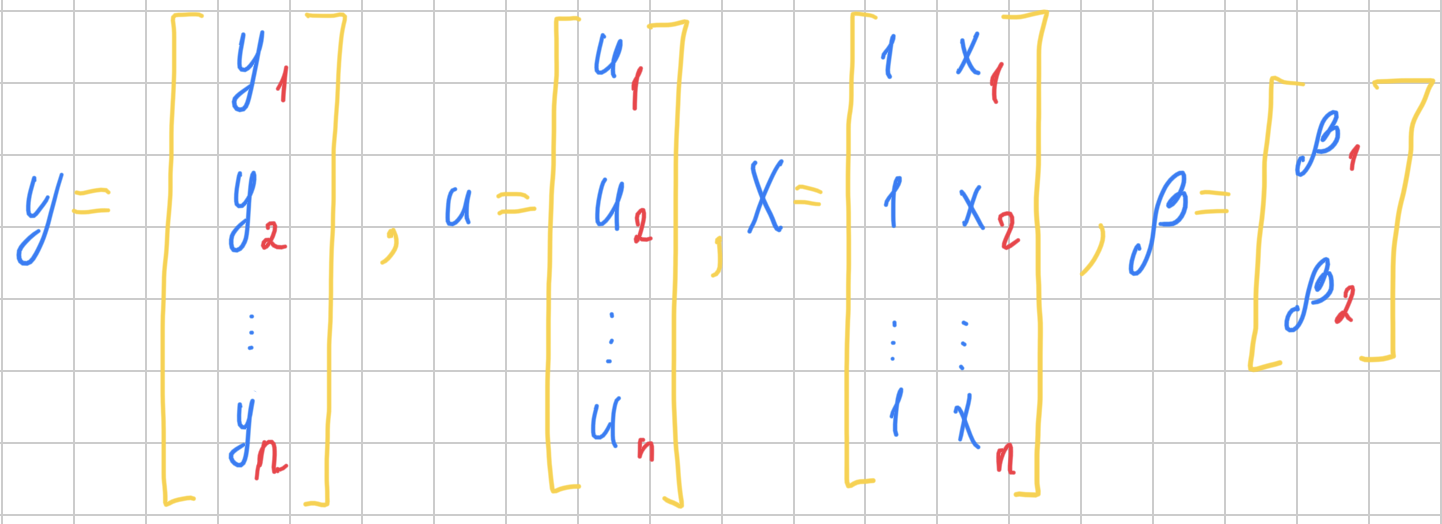 y = [y₁ y₂ ⋮ yₙ], u = [u₁ u₂ ⋮ uₙ], X = [1 x₁ 1 x₂ ⋮ ⋮ 1 xₙ], β = [β₁ β₂]